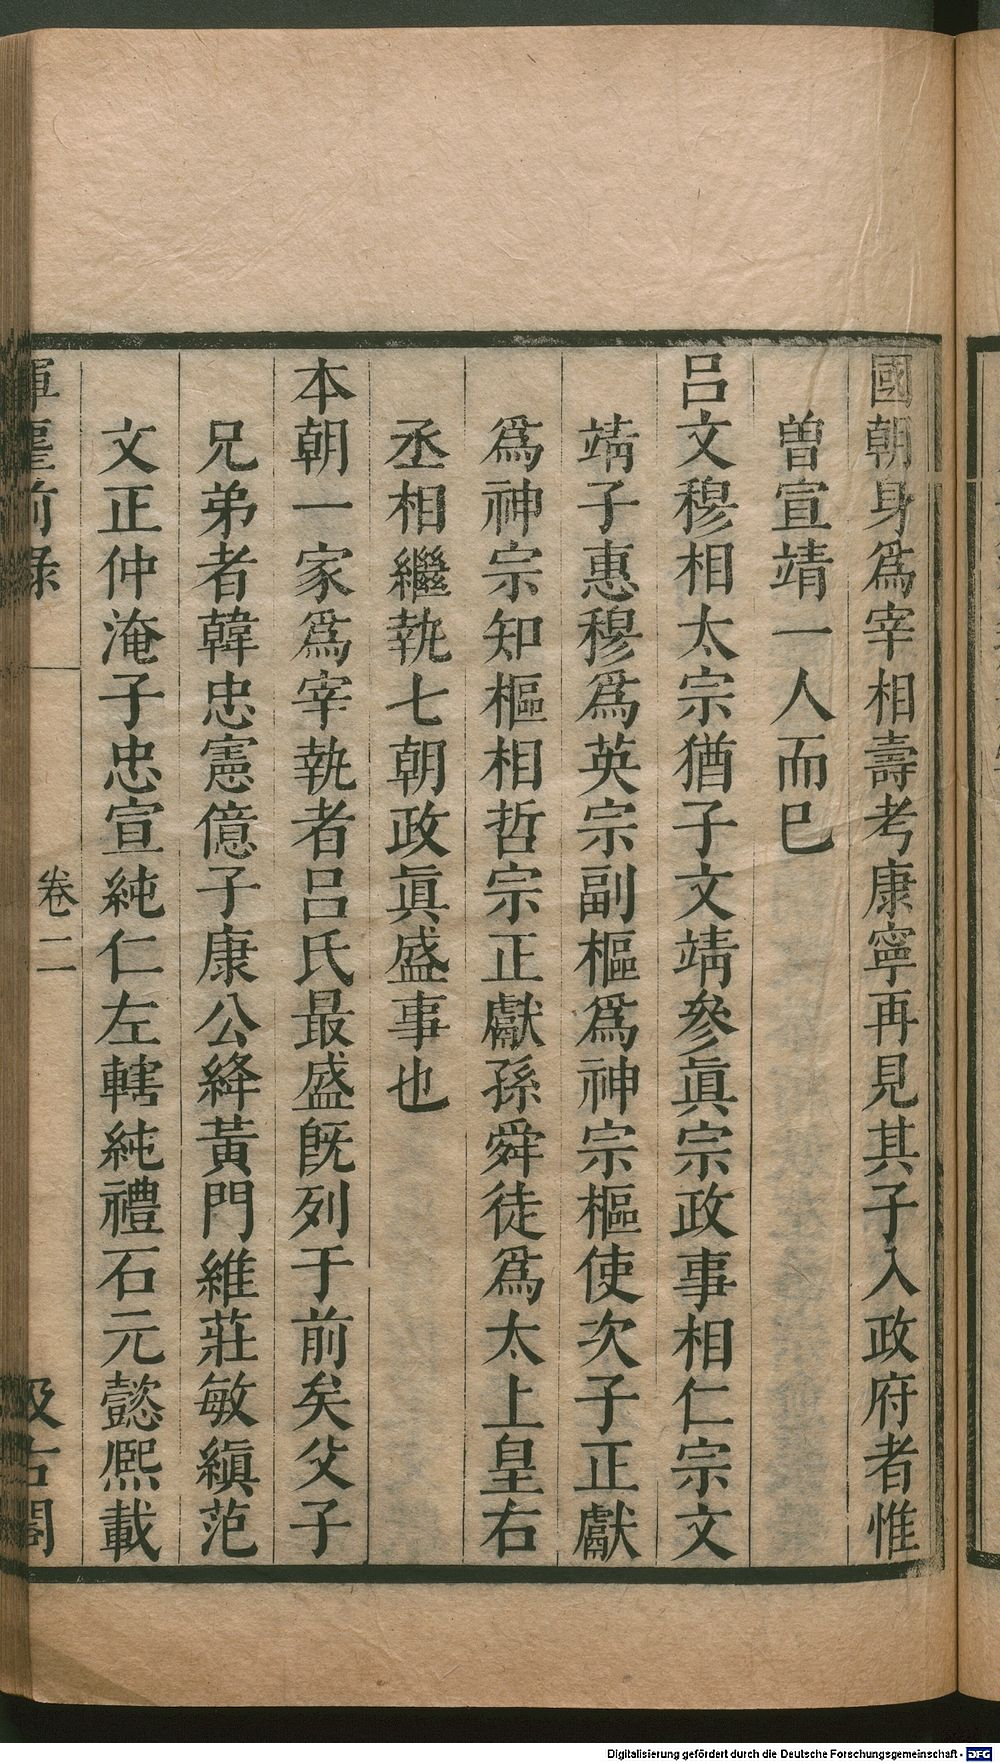 國朝身爲宰相壽考康寧再見其子入政府者惟
曾宣靖一人而已
呂文穆相太宗猶子文靖參眞宗政事相仁宗文
靖子惠穆爲英宗副樞爲神宗樞使次子正獻
爲神宗知樞相哲宗正獻孫舜徒爲太上皇右
丞相繼執七朝政眞盛事也
本朝一家爲宰執者呂氏最盛旣列于前矣父子
兄弟者韓忠憲億子康公絳黃門維莊敏縝范
文正仲淹子忠宣純仁左轄純禮石元懿熙載
揮麈前錄
卷二
汲古閣
Digitalisierung gefördert durch die Deutsche Forschungsgemeinschaft - DFG